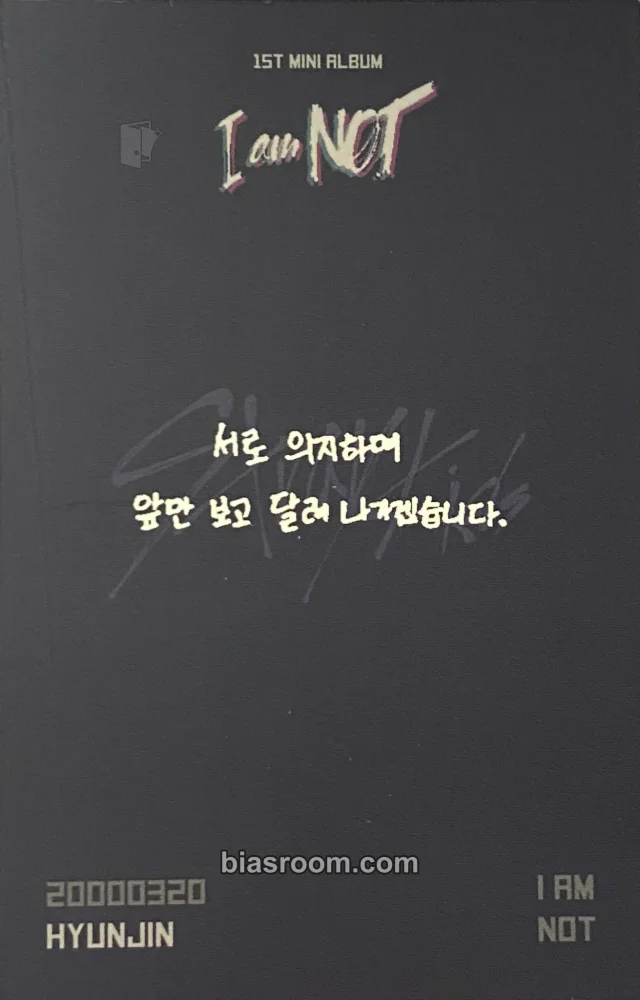 1ST MINI ALBUM
I am NOT
Stray Kids
서로 의지하며
앞만 보고 달려 나가겠습니다.
biasroom.com
20000320
HYUNJIN
I AM
NOT